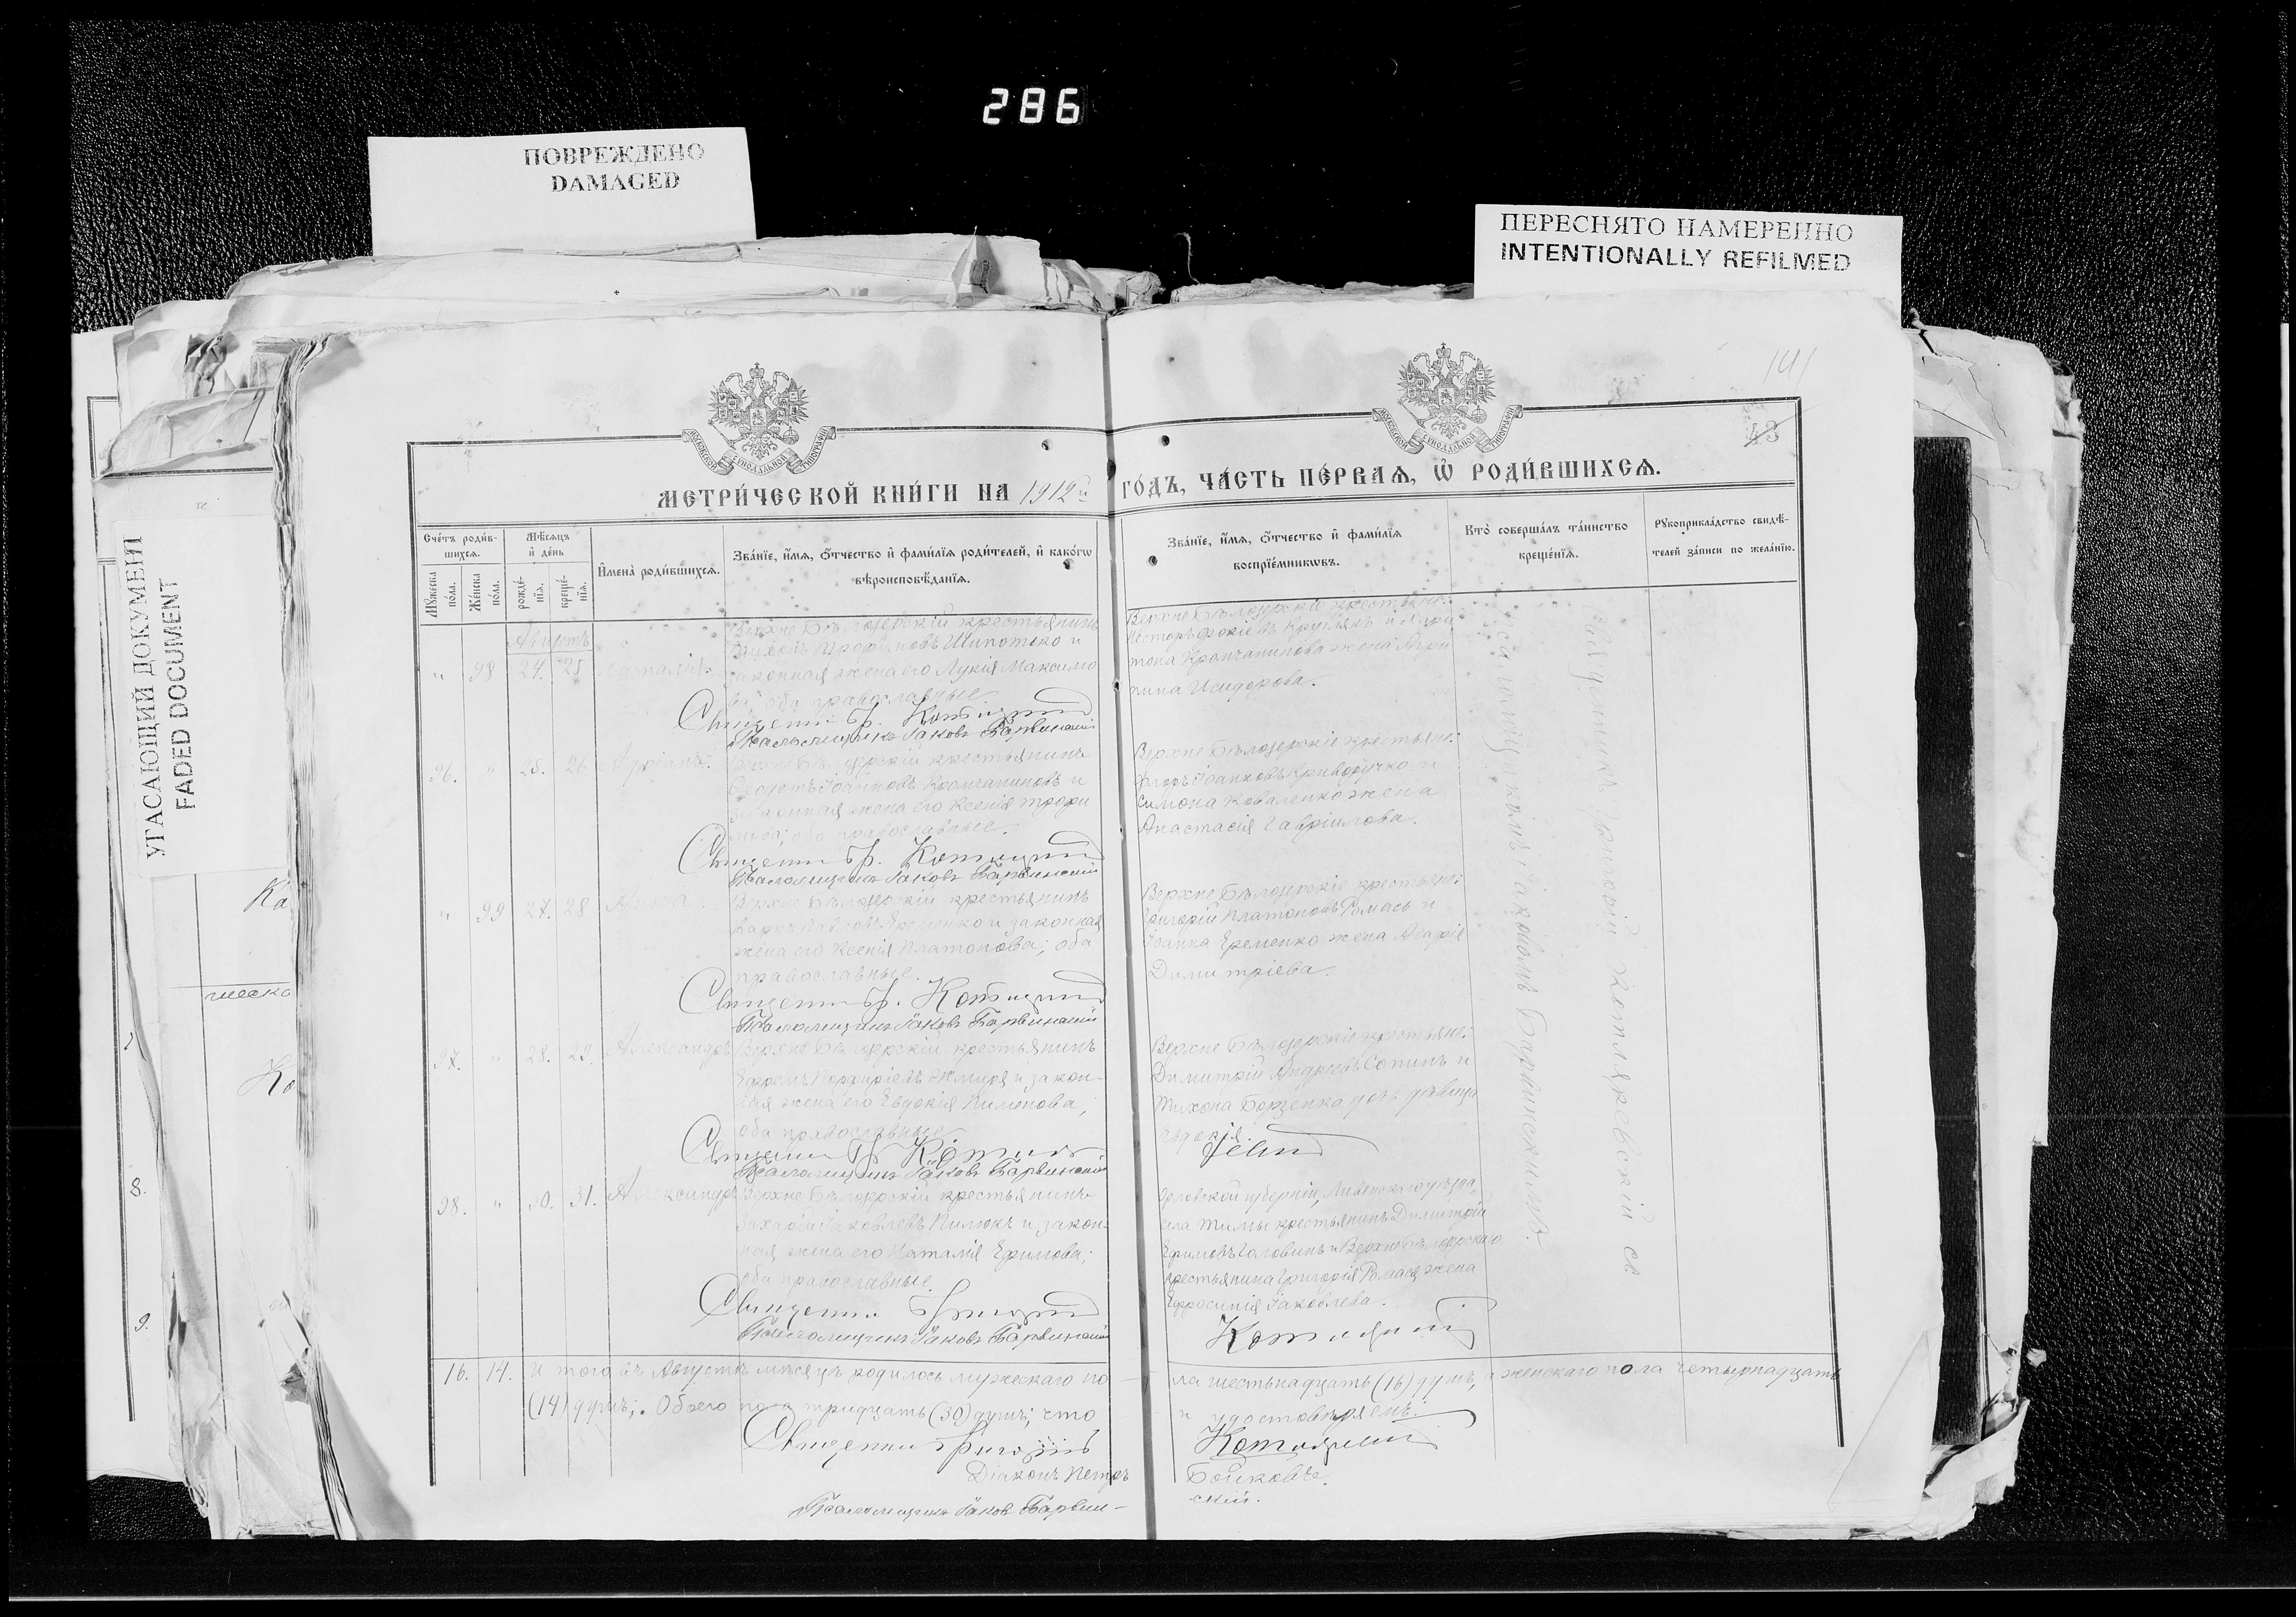 286
ПОВРЕЖДЕНО
DAMAGED
ПЕРЕСНЯТО НАМЕРЕННО
INTENTIONALLY REFILMED
УГАСАЮЩИЙ ДОКУМЕНТ
FADED DOCUMENT
141
43
МОСКОВСКОЙ СУНОДАЛЬНОЙ ТИПОГРАФІИ
МОСКОВСКОЙ СУНОДАЛЬНОЙ ТИПОГРАФІИ
МЕТРИ́ЧЕСКОЙ КНИ́ГИ НА 1912й ГО́ДЪ, ЧА́СТЬ ПЕ́РВАѦ, Ѽ РОДИ́ВШИХСѦ.
Сче́тъ роди́в-
шихсѧ.
Мꙋ́жеска по́ла.
Же́нска по́ла.
Мѣ́сѧцъ
и҆ де́нь
рожде́-
нїѧ.
креще́-
нїѧ.
И҆мена̀ роди́вшихсѧ.
Зва́нїе, и҆́мѧ, ѻ҆́тчество и҆ фами́лїѧ роди́телей, и҆ како́гѡ
вѣроисповѣ́данїѧ.
Зва́нїе, и҆́мѧ, ѻ҆́тчество и҆ фами́лїѧ
воспрїе́мникѡвъ.
Кто̀ соверша́лъ та́инство
креще́нїѧ.
Рꙋкоприкла́дство свидѣ́-
телей за́писи по жела́нїю.
Августъ
" 98 24. 25 Наталія.
Верхне Бѣлозерскій крестьянинъ
Трофимовъ Шипотько и
законная жена его Лукія Максимо
ва; оба православные.
Священникъ Гр. Котляревскій
Псаломщикъ Іаковъ Барвинскій
Верхне Бѣлозерскіе крестьяне:
Несторъ Фокіевъ и Хари
тона Крамчанинова жена Агри
пина Исидорова.
96. " 25. 26
Верхне Бѣлозерскій крестьянинъ
Ѳеодотъ Іоанновъ Крамчаниновъ и
законная жена его Ксенія Трофи
мова; оба православные.
Священникъ Гр. Котляревскій
Псаломщикъ Іаковъ Барвинскій
Верхне Бѣлозерскіе крестьяне:
Флоръ Іоанновъ Криворучко и
Симона Коваленко жена
Анастасія Гавріилова.
" 99 27. 28 Анна
Верхне Бѣлозерскій крестьянинъ
Карпъ Павловъ Яременко и законная
жена его Ксенія Платонова; оба
православные.
Священникъ Гр. Котляревскій
Псаломщикъ Іаковъ Барвинскій
Верхне Бѣлозерскіе крестьяне:
Григорій Платоновъ Ромасъ и
Іоанна Яременко жена Агафія
Димитріева.
97. " 28. 29. Александръ
Верхне Бѣлозерскій крестьянинъ
Ефремъ Порфиріевъ Жмиря и закон-
ная жена его Евдокія Пименова;
оба православные
Священникъ Гр. Котляревскій
Псаломщикъ Іаковъ Барвинскій
Верхне Бѣлозерскіе крестьяне:
Димитрій Андреевъ Сопинъ и
Тихона Борзенко дочь дѣвица
Евдокія.
98. " 30. 31. Александръ
Верхне Бѣлозерскій крестьянинъ
Захарій Іаковлевъ Пилюкъ и закон-
ная жена его Наталія Ефимова;
оба православные.
Священникъ Григорій
Псаломщикъ Іаковъ Барвинскій
Орловской губерніи, Ливенскаго уѣзда,
села Тимы крестьянинъ Димитрій
Ефимовъ Головинъ и Верхне Бѣлозерскаго
крестьянина Григорія Ромася жена
Ефросинія Іаковлева.
Котляревскій
Священникъ Григорій Котляревскій съ
псаломщикомъ Іаковомъ Барвинскимъ.
16. 14. И того въ Августѣ мѣсяцѣ родилось мужескаго по
ла шестьнадцать (16) душъ, а женскаго пола четырнадцать
(14) душъ; Обоего пола тридцать (30) душъ; что
и удостовѣряемъ:
Священникъ Григорій Котляревскій
Діаконъ Петръ Бойковъ
Псаломщикъ Іаковъ Барвин-
скій.
Ка
ческо
Ко
8.
9.